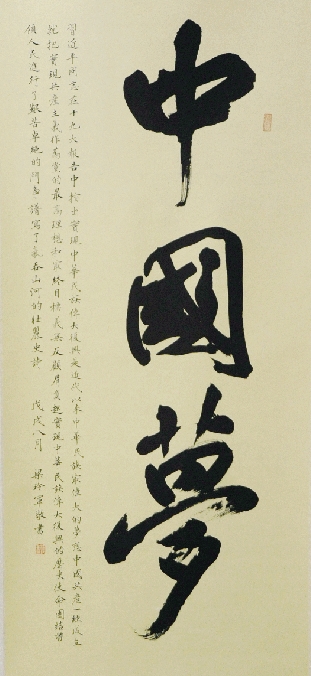 中國夢
習近平同志在十九大報告中指出實現中華民族偉大復興是近代以來中華民族最偉大的夢想中國共產黨一經成立
就把實現共產主義作為黨的最高理想和最終目標義無反顧肩負起實現中華民族偉大復興的歷史使命團結帶
領人民進行了艱苦卓絕的鬥爭譜寫了氣吞山河的壯麗史詩
戊戌八月 梁 敬書